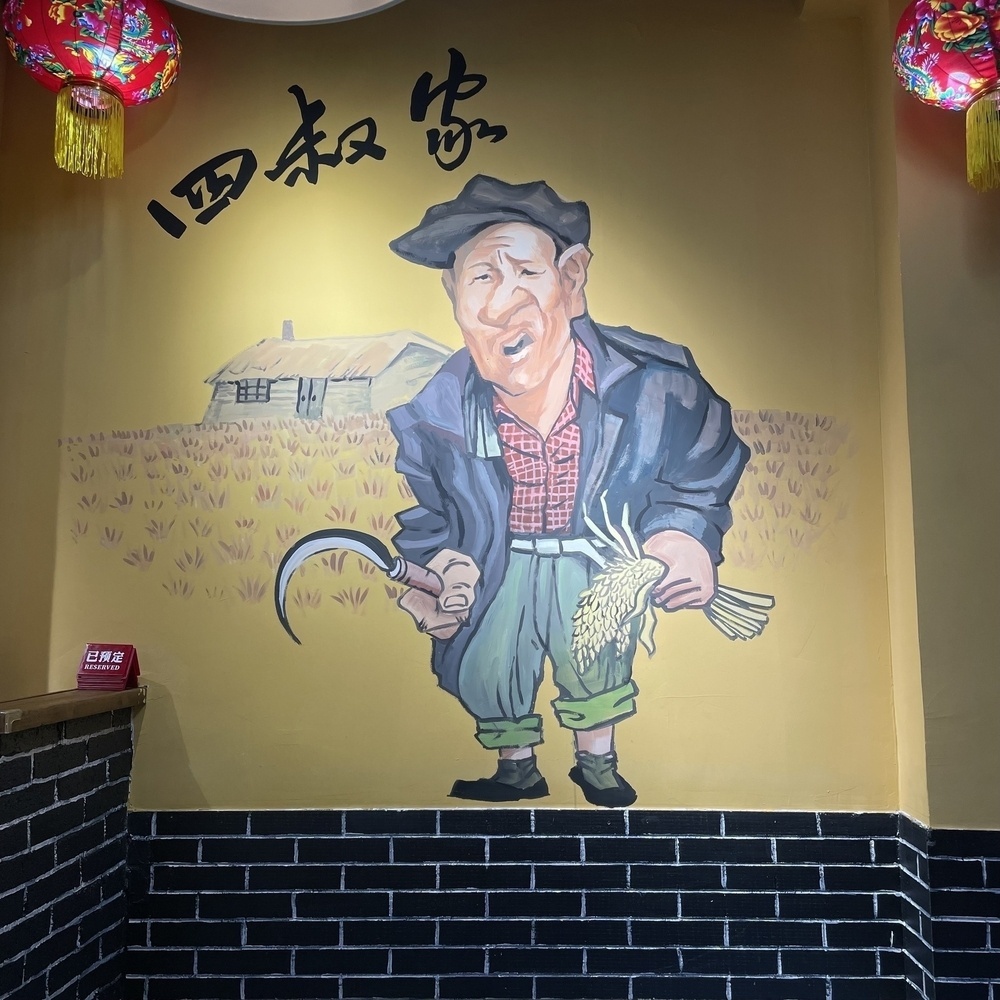 四叔家
已预定
RESERVED